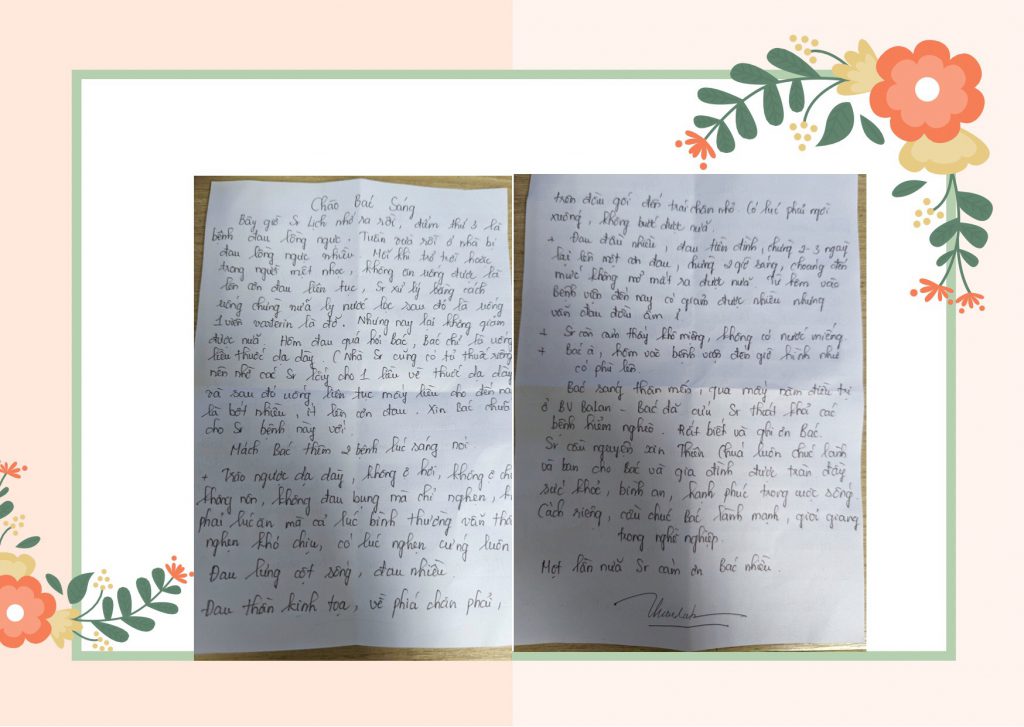 Chào Bác Sáng
Bây giờ Sr Lịch nhớ ra rồi, đám thứ 3 là
bệnh đau lồng ngực. Tuần vừa rồi ở nhà bị
đau lồng ngực nhiều. Mỗi khi trở trời hoặc
trong người mệt nhọc, không ăn uống được là
lên cơn đau liên tục, Sr xử lý bằng cách
uống chừng nửa ly nước lọc sau đó là uống
1 viên vasterin là đỡ. Nhưng nay lại không giảm
được nữa. Hôm đau quá hỏi Bác, Bác chỉ là uống
liều thuốc dạ dày. (Nhà Sr cũng có tổ thuốc riêng
nên nhờ các Sr lấy cho 1 lần về thuốc dạ dày
và sau đó uống liên tục mấy liều cho đến na
là bớt nhiều, ít lên cơn đau. Xin Bác chữa
cho Sr bệnh này với.
Mách Bác thêm 2 bệnh lúc sáng nói.
+ Trào ngược dạ dày, không ợ hơi, không ợ ch
không nôn, không đau bụng mà chỉ nghẹn, k
phải lúc ăn mà cả lúc bình thường vẫn thấ
nghẹn khó chịu, có lúc nghẹn cứng luôn
Đau lưng cột sống, đau nhiều.
Đau thần kinh tọa, về phía chân phải,
tròn đầu gối đến trái chân nhỏ. Có lúc phải ngồi
xuống, không bước được nữa.
+ Đau đầu nhiều, đau tiền đình, chừng 2-3 ngày
lại lên một cơn đau, chừng 2 giờ sáng, choáng đến
mức không mở mắt ra được nữa. Từ hôm vào
Bệnh viện đến nay có giảm được nhiều nhưng
vẫn đau đầu âm ỉ
+ Sr còn cảm thấy khô miệng, không có nước miếng.
+ Bác à, hôm vào bệnh viện đến giờ hình như
có phù lên
Bác sáng thân mến, qua mấy năm điều trị
ở BV BaLan - Bác đã cứu Sr thoát khỏi các
bệnh hiểm nghèo. Rất biết và ghi ơn Bác.
Sr cầu nguyện xin Thiên Chúa luôn chúc lành
và ban cho Bác và gia đình được tràn đầy
sức khoẻ, bình an, hạnh phúc trong cuộc sống.
Cách riêng, cầu chúc Bác lành mạnh, giỏi giang
trong nghề nghiệp.
Một lần nữa Sr cảm ơn Bác nhiều.